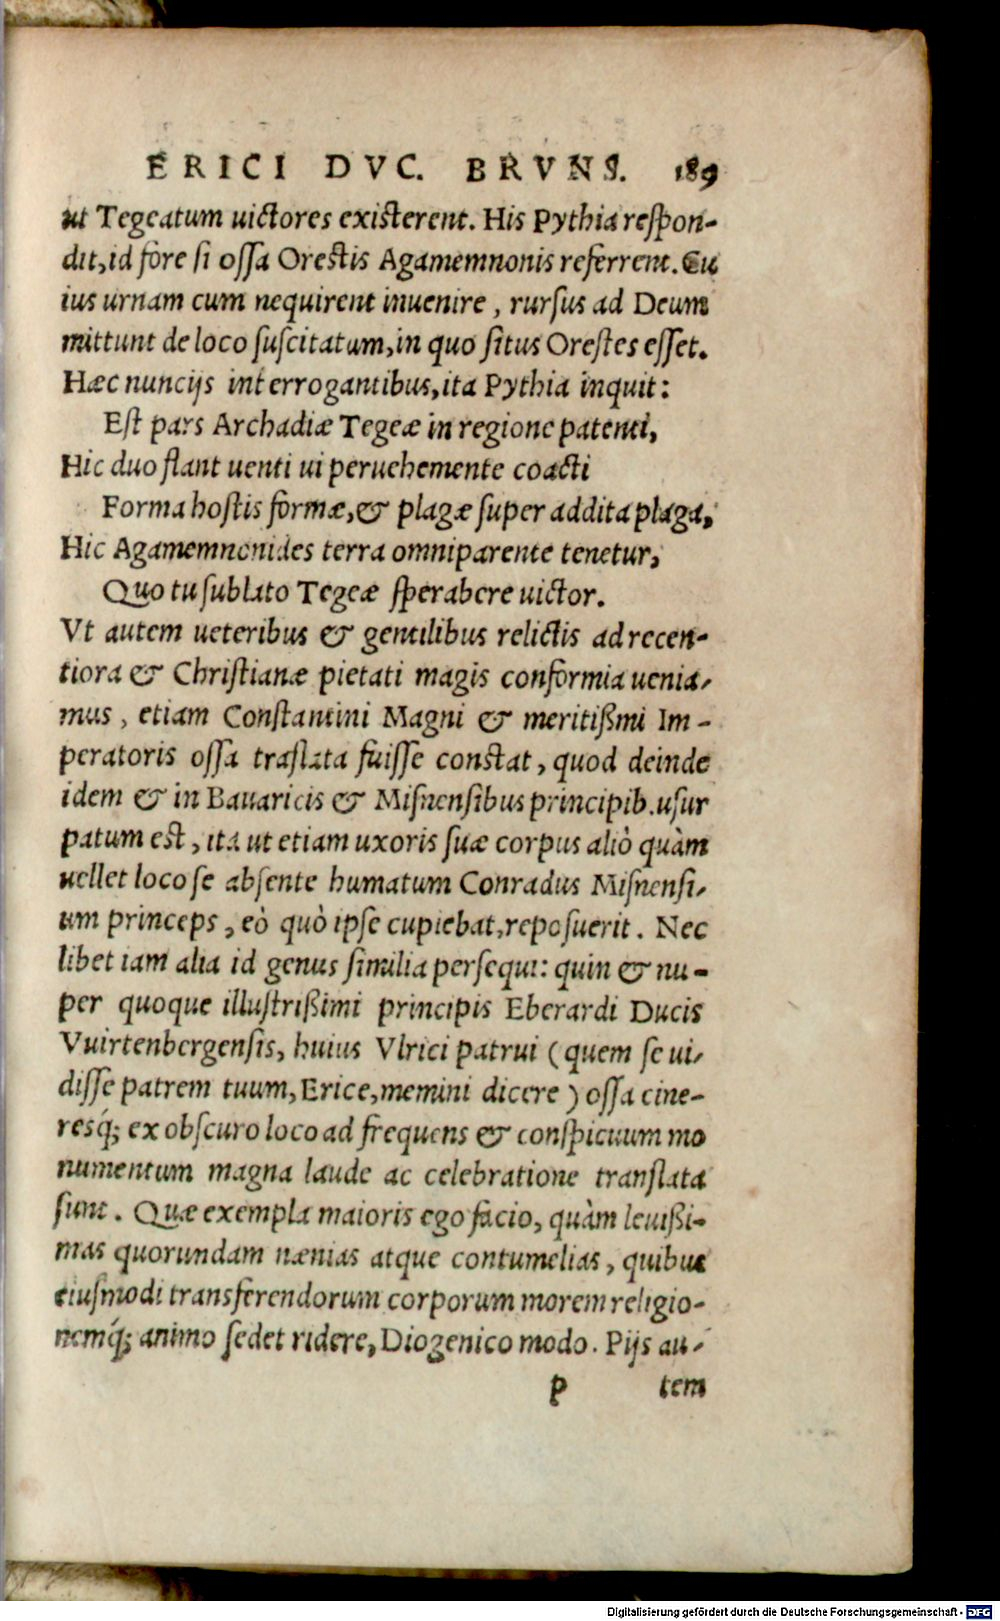 ERICI DVC. BRVNS. 189
ut Tegeatum uictores existerent. His Pythia respon-
dit, id fore si ossa Orestis Agamemnonis referrent. Cu
ius urnam cum nequirent inuenire, rursus ad Deum
mittunt de loco suscitatum, in quo situs Orestes esset.
Hæc nuncijs interrogantibus, ita Pythia inquit:
Est pars Archadiæ Tegeæ in regione patenti,
Hic duo flant uenti ui peruehemente coacti
Forma hostis formæ, & plagæ super addita plaga,
Hic Agamemnonides terra omniparente tenetur,
Quo tu sublato Tegeæ sperabere uictor.
Vt autem ueteribus & gentilibus relictis ad recen-
tiora & Christianæ pietati magis conformia uenia-
mus, etiam Constantini Magni & meritißmi Im-
peratoris ossa traslata fuisse constat, quod deinde
idem & in Bauaricis & Misnensibus principib. usur
patum est, ita ut etiam uxoris suæ corpus aliò quàm
uellet loco se absente humatum Conradus Misnensi-
um princeps, eò quò ipse cupiebat, reposuerit. Nec
libet iam alia id genus similia persequi: quin & nu-
per quoque illustrißimi principis Eberardi Ducis
Vuirtenbergensis, huius Vlrici patrui (quem se ui-
disse patrem tuum, Erice, memini dicere) ossa cine-
resq́; ex obscuro loco ad frequens & conspicuum mo
numentum magna laude ac celebratione translata
sunt. Quæ exempla maioris ego facio, quàm leuißi-
mas quorundam nænias atque contumelias, quibus
eiusmodi transferendorum corporum morem religio-
nemq́; animo sedet ridere, Diogenico modo. Pijs au-
p tem
Digitalisierung gefördert durch die Deutsche Forschungsgemeinschaft - DFG